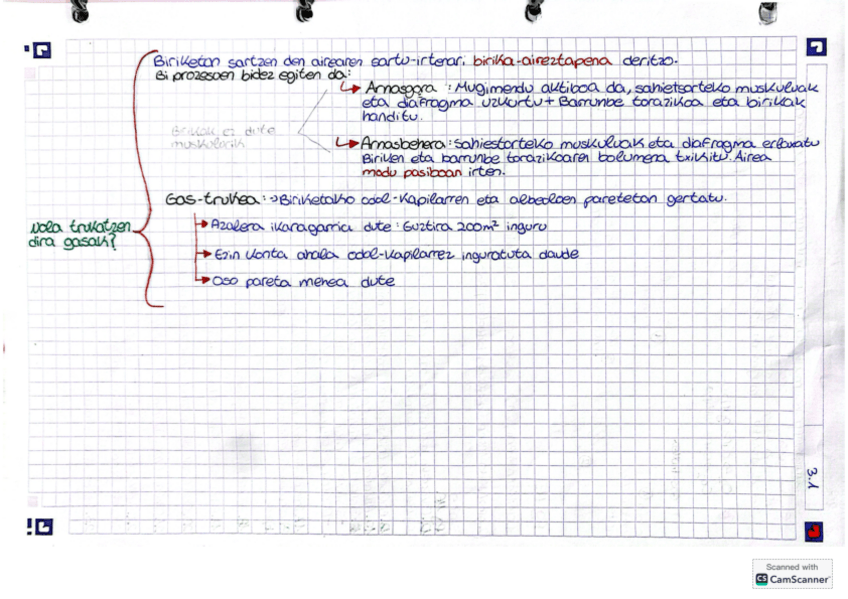 Biriketan sartzen den airearen sartu-irtenari birika-aireztapena deritzo.
Bi prozesoen bidez egiten da:
↳ Arnasgora : Mugimendu aktiboa da, sahietsarteko muskuluak
eta diafragma uzkurtu + Barrunbe torazikoa eta birikak
handitu.
Birikak ez dute
muskulorik
↳ Arnasbehera : Sahiestarteko muskuluak eta diafragma erlaxatu
Biriken eta barrunbe torazikoaren bolumena txikitu. Airea
modu pasiboan irten.
Gas-trukea : → Biriketako odol-kapilarren eta albeoloen paretetan gertatu.
Nola trukatzen
dira gasak?
→ Azalera ikaragarria dute : Guztira 200m² inguru
→ Ezin konta ahala odol-kapilarrez inguratuta daude
→ Oso pareta mehea dute
3.1
Scanned with
CS CamScanner